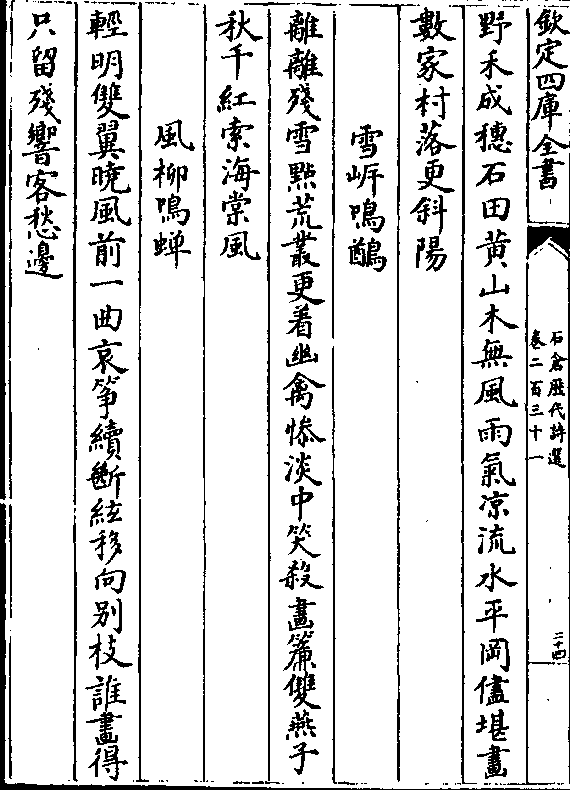 欽定四庫全書
石倉歷代詩選
卷二百三十一
二十四
野禾成穗石田黄山木無風雨氣凉流水平岡儘堪畫
數家村落更斜陽
雪㟁鳴鶻
離離殘雪㸃荒叢更着幽禽慘淡中笑殺畫簾雙燕子
秋千紅索海棠風
風柳鳴蟬
輕明雙翼曉風前一曲哀筝續斷絃移向别枝誰畫得
只留殘響客愁邊